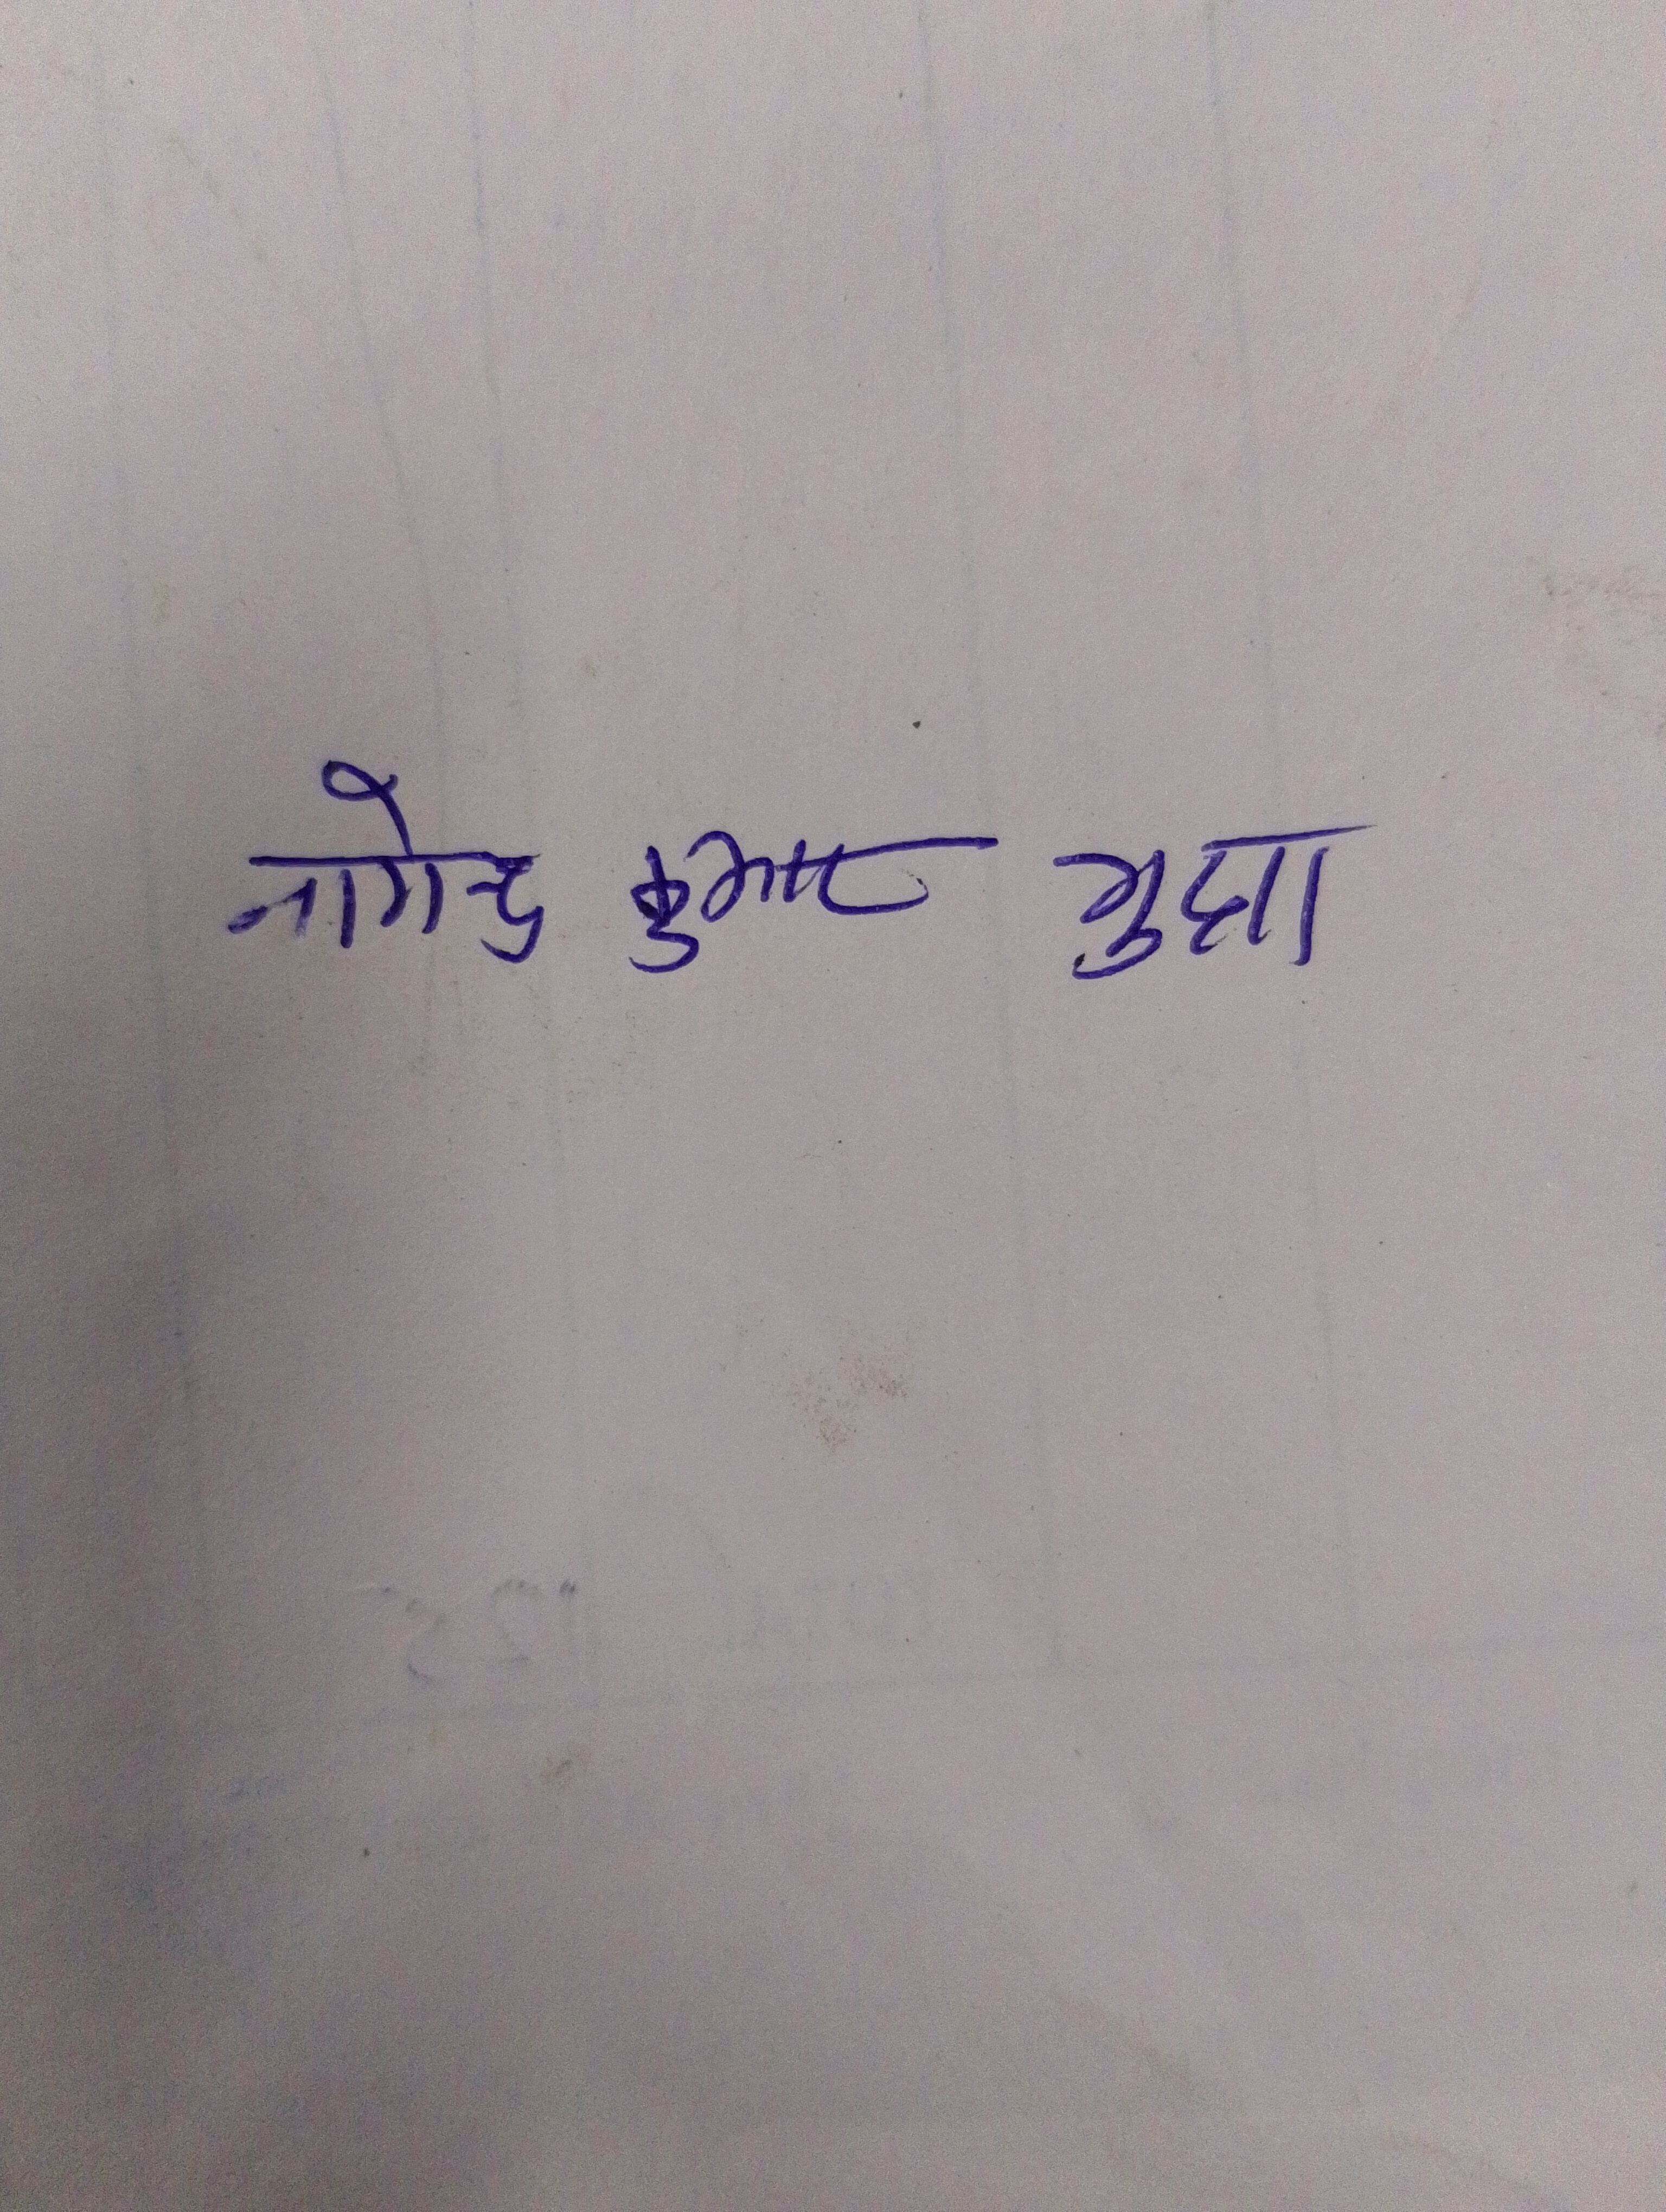 नागेन्द्र कुमार गुप्ता